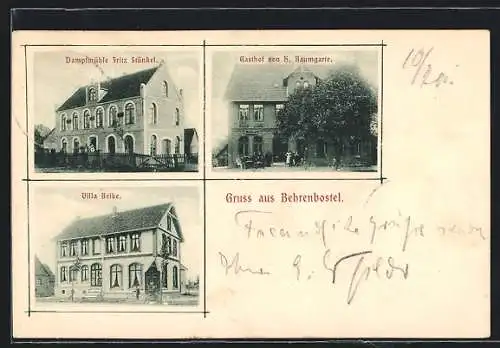 Dampfmühle Fritz Stünkel.
Gasthof von H. Baumgarte.
Villa Heike.
Gruss aus Behrenbostel.
Freundliche Grüße